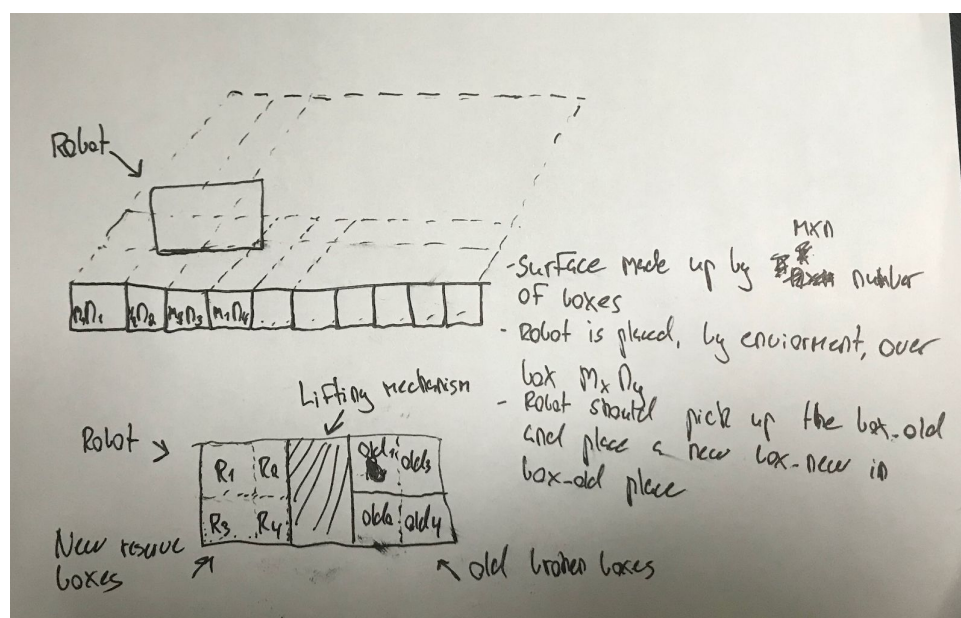 Robot
m1n2 m1n3 m1n4
MXN
- Surface made up by number
of boxes
- Robot is placed, by enviorment, over
box MxNy
- Robot should pick up the box_old
and place a new box_new in
box_old place
Lifting mechanism
Robot
R1 R2 old1 old3
R3 R4 old2 old4
New reserve
boxes
old broken boxes